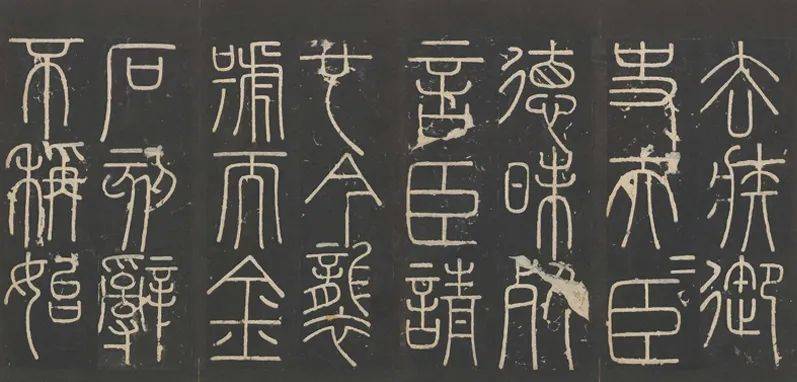 去疾御
史夫二臣
德昧死
言臣請
也今襲
號而金
石刻辭
不稱始